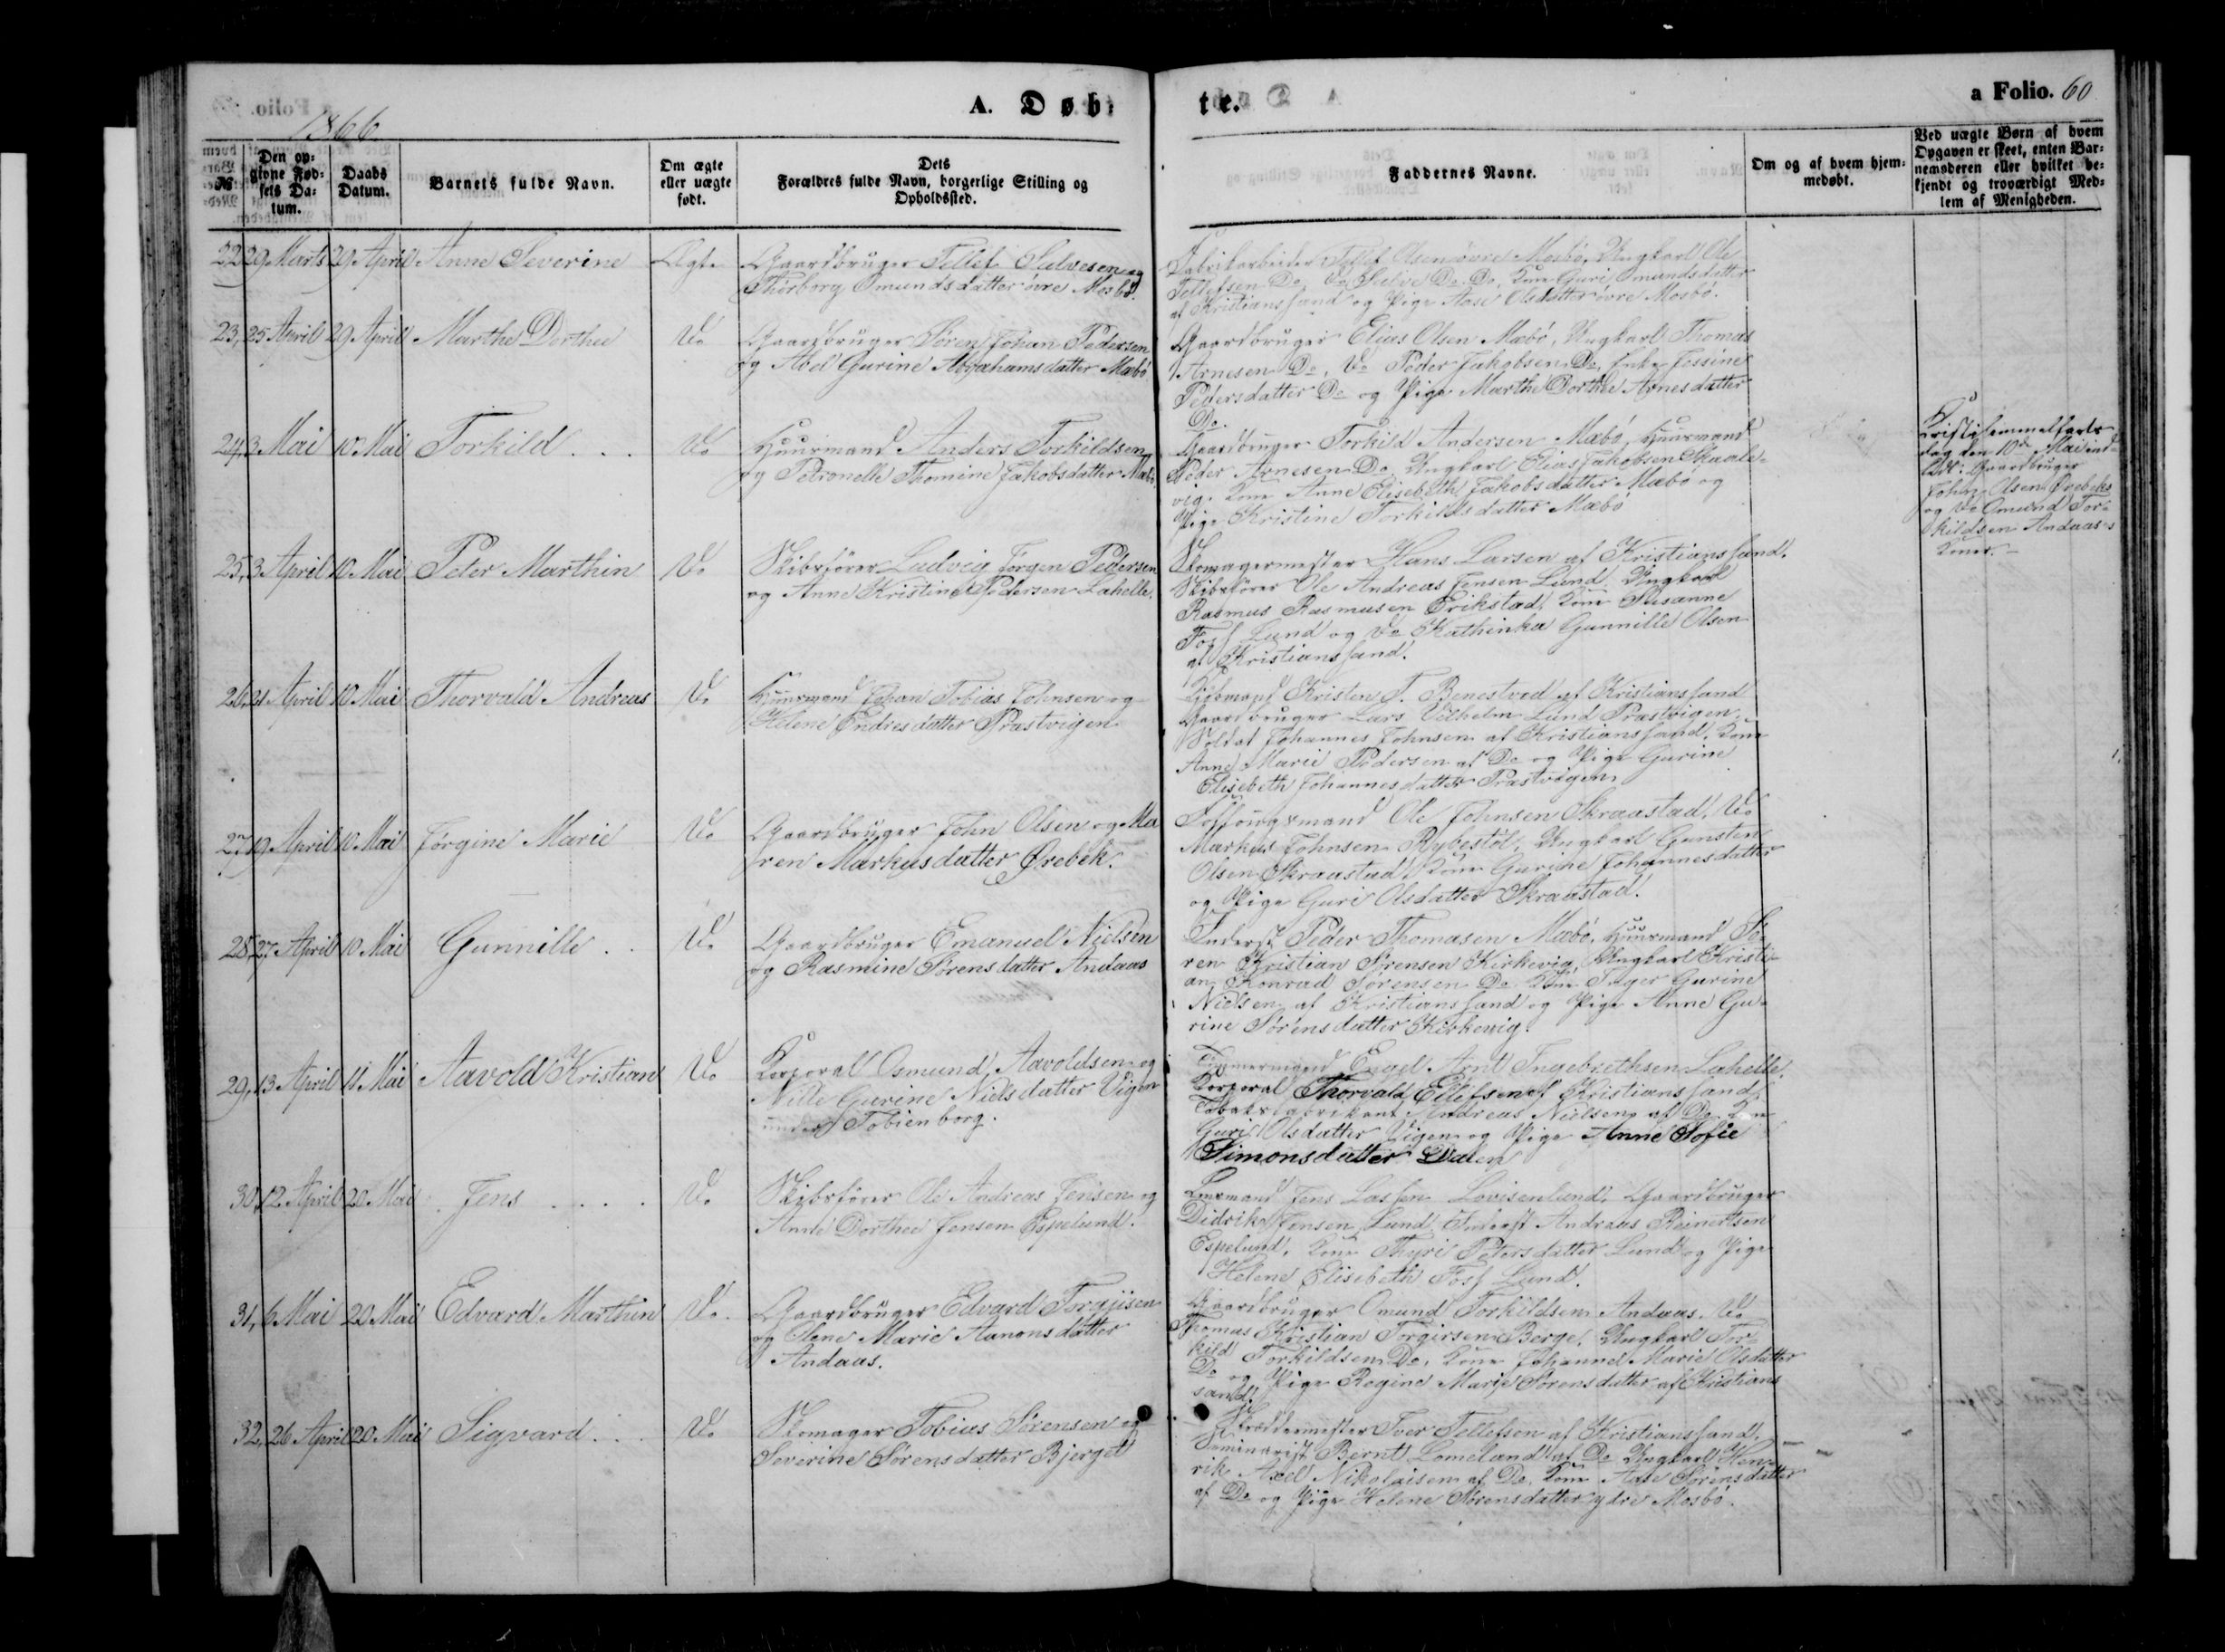 1866
A. Døb:
te.
a Folio. 60
№
Den op=
givne Fød=
sels Da=
tum.
Daabs
Datum.
Barnets fulde Navn.
Om ægte
eller uægte
født.
Dets
Forældres fulde Navn, borgerlige Stilling og
Opholdssted.
Faddernes Navne.
Om og af hvem hjem=
medøbt.
Ved uægte Børn af hvem
Opgaven er skeet, enten Bar=
nemoderen eller hvilket be=
kjendt og troværdigt Med=
lem af Menigheden.
22 29 Marts 29 April Anne Severine Ægte
Gaardbruger Tellef Salvesen og
Thorborg Omundsdatter øvre Mosbø.
Fabrikarbeider Tellef Olsen øvre Mosbø, Ungkarl Ole
Tellefsen Do, Do Salve Do. Do, Kone Guri Omundsdatter
af Kristianssand og Pige Aase Olsdatter øvre Mosbø.
23, 25 April 29 April Marthe Dorthea Do
Gaardbruger Søren Johan Pedersen
og Abel Gurine Abrahamsdatter Mæbø
Gaardbruger Elias Olsen Mæbø, Ungkarl Thomas
Arnesen Do, Do Peder Jakobsen Do, Enke Jessine
Pedersdatter Do og Pige Marthe Dorthea Arnesdatter
Do.
24, 3 Mai 10 Mai Torkild . . . Do
Huusmand Anders Torkildsen
og Petronelle Thomine Jakobsdatter Mæbø
Gaardbruger Torkild Andersen Mæbø, Huusmand
Peder Arnesen Do, Ungkarl Elias Jakobsen Skaale-
vig. Kone Anne Elisebeth Jakobsdatter Mæbø og
Pige Kristine Torkildsdatter Mæbø
Kristi Himmelfarts
dag den 10de Mai ind-
ledt: Gaardbruger
John Olsen Ørebeks
og Do Omund Tor-
kildsen Andaas's
Koner. -
25, 3 April 10 Mai Peter Marthin Do
Skibsfører Ludvig Jørgen Pedersen
og Anne Kristine Pedersen Lahelle.
Skomagermester Hans Larsen af Kristianssand.
Skibsfører Ole Andreas Jensen Lund, Ungkarl
Rasmus Rasmusen Erikstad, Kone Susanne
Foss Lund og Do Kathinka Gunnille Olsen
af Kristianssand.
26, 21 April 10 Mai Thorvald Andreas Do
Huusmand Johan Tobias Johnsen og
Helene Endresdatter Præstvigen
Kjøbmand Kristen T. Benestved af Kristianssand
Gaardbruger Lars Vilhelm Lund Præstvigen,
Soldat Johannes Johnsen af Kristianssand, Kone
Anne Marie Pedersen af Do og Pige Gurine
Elisebeth Johannesdatter Præstvigen
27, 19 April 10 Mai Jørgine Marie Do
Gaardbruger John Olsen og Ma
ren Markusdatter Ørebek.
Ole Johnsen Skraastad, Do
Markus Johnsen Rybestøl, Ungkarl Gunsten
Olsen Skraastad, Kone Gurine Johannesdatter
og Pige Guri Olsdatter Skraastad.
28, 27 April 10 Mai Gunnille . . Do
Gaardbruger Emanuel Nielsen
og Rasmine Sørensdatter Andaas
Inderst Peder Thomasen Mæbø, Huusmand Sø-
ren Kristian Sørensen Kirkevig, Ungkarl Kristi-
an Konrad Sørensen Do Kone Inger Gurine
Nielsen af Kristianssand og Pige Anne Gu-
rine Sørensdatter Kirkevig.
29, 13 April 11 Mai Aavold Kristian Do
Korporal Osmund Aavoldsen og
Nille Gurine Nielsdatter Vigen
under Tobienborg.
Tømmermand Engel Arnt Ingebrethsen Lahelle.
Korporal Thorvald Ellefsen af Kristianssand,
Tobaksfabrikant Andreas Nielsen af Do Kone
Guri Olsdatter Vigen og Pige Anne Sofie
Simonsdatter Dalen
30, 12 April 20 Mai Jens . . . . Do
Skibsfører Ole Andreas Jensen og
Anne Dorthea Jensen Espelund.
Lensmand Jens Lassen Lovisenlund, Gaardbruger
Didrik Jensen Lund, Inderst Andreas Reinertsen
Espelund, Kone Thyri Petersdatter Lund og Pige
Helene Elisebeth Foss Lund.
31, 6 Mai 20 Mai Edvard Marthin Do.
Gaardbruger Edvard Torgjisen
og Olene Marie Aanonsdatter
Andaas.
Gaardbruger Omund Torkildsen Andaas. Do
Thomas Kristian Torgirsen Berge, Ungkarl Tor-
kild Torkildsen Do, Kone Johanne Marie Olsdatter
Do og Pige Regine Marie Sørensdatter af Kristians
sand.
32, 26 April 20 Mai Sigvard . . . Do
Skomager Tobias Sørensen og
Severine Sørensdatter Bjerget
Skræddermester Iver Tellefsen af Kristianssand,
Seminarist Bernt Lomeland af Do Ungkarl Hen-
rik Axel Nikolaisen af Do, Kone Aase Sørensdatter
af Do og Pige Helene Sørensdatter ydre Mosbø.